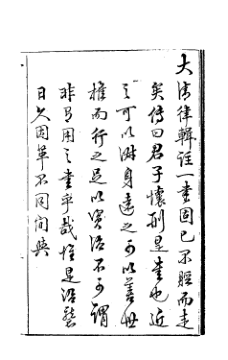 大清律輯註一書固已不脛而走
矣傳曰君子懷刑是書也近
之可以淑身遠之可以善世
推而行之足以實治不可謂
非有用之書乎哉惟是沿襲
日久因革不同間與